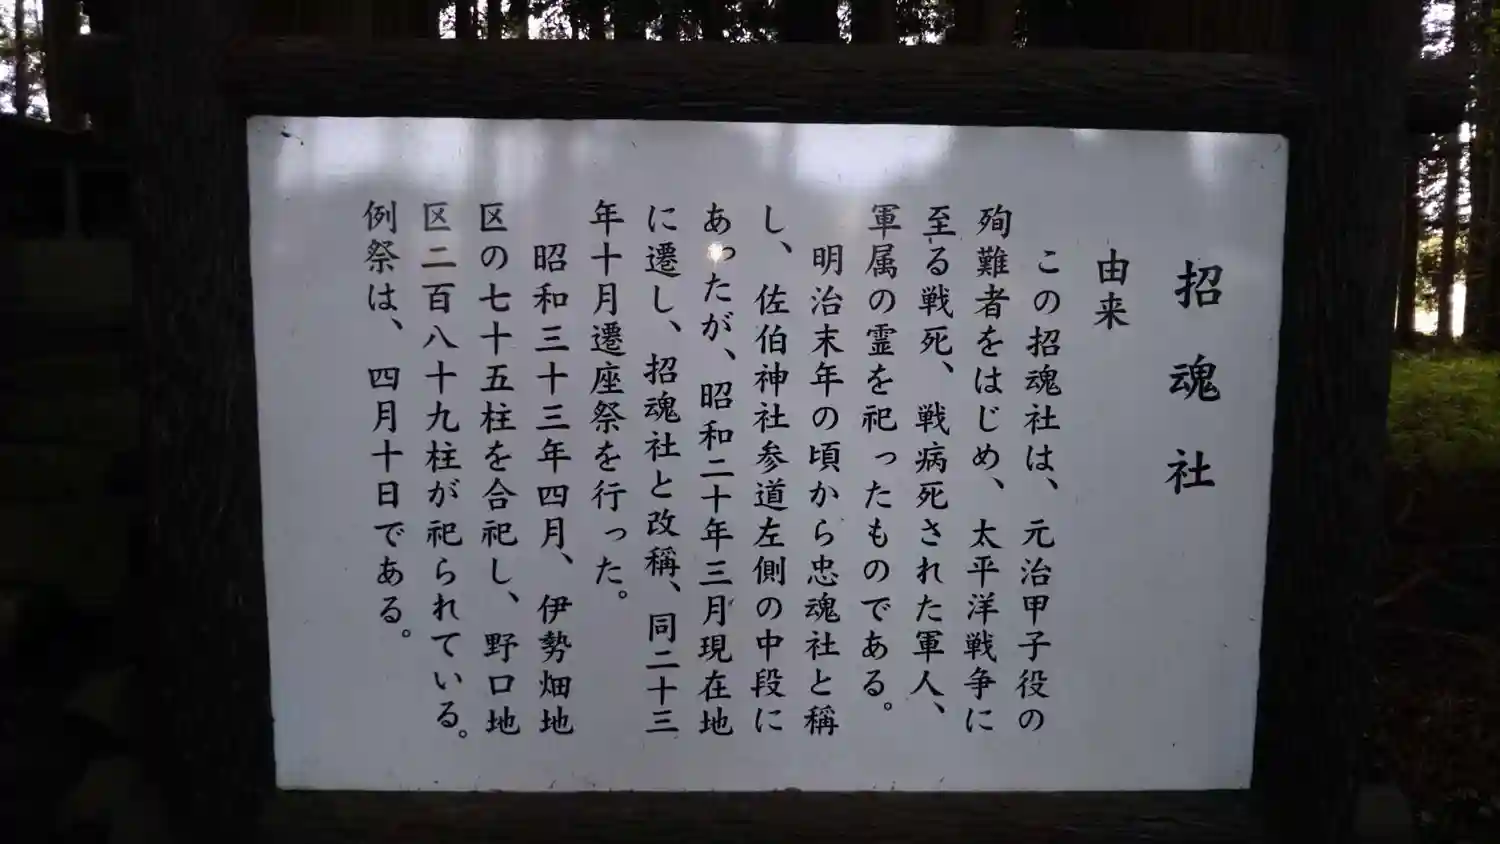 招魂社
由来
この招魂社は、元治甲子役の
殉難者をはじめ、太平洋戦争に
至る戦死、戦病死された軍人、
軍属の霊を祀ったものである。
明治末年の頃から忠魂社と稱
し、佐伯神社参道左側の中段に
あったが、昭和二十年三月現在地
に遷し、招魂社と改稱、同二十三
年十月遷座祭を行った。
昭和三十三年四月、伊勢畑地
区の七十五柱を合祀し、野口地
区二百八十九柱が祀られている。
例祭は、四月十日である。